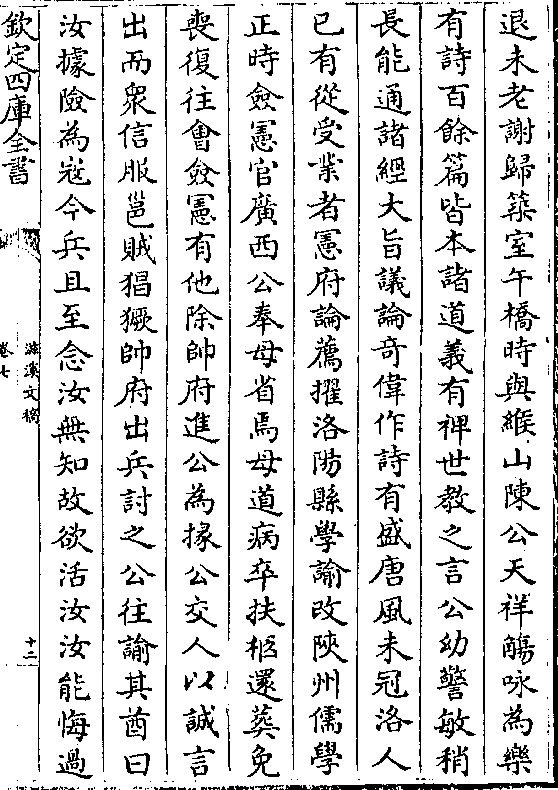 退未老謝歸築室午橋時與緱山陳公天祥觴咏為樂
有詩百餘篇皆本諸道義有裨世教之言公幼警敏稍
長能通諸經大旨議論奇偉作詩有盛唐風未冠洛人
已有從受業者憲府論薦擢洛陽縣學諭改陜州儒學
正時僉憲官廣西公奉母省焉母道病卒扶柩還葬免
喪復往會僉憲有他除帥府進公為掾公交人以誠言
出而衆信服邕賊猖獗帥府出兵討之公往諭其酋曰
汝據險為冦今兵且至念汝無知故欲活汝汝能悔過
欽定四庫全書
滋溪文稿
卷七
十二